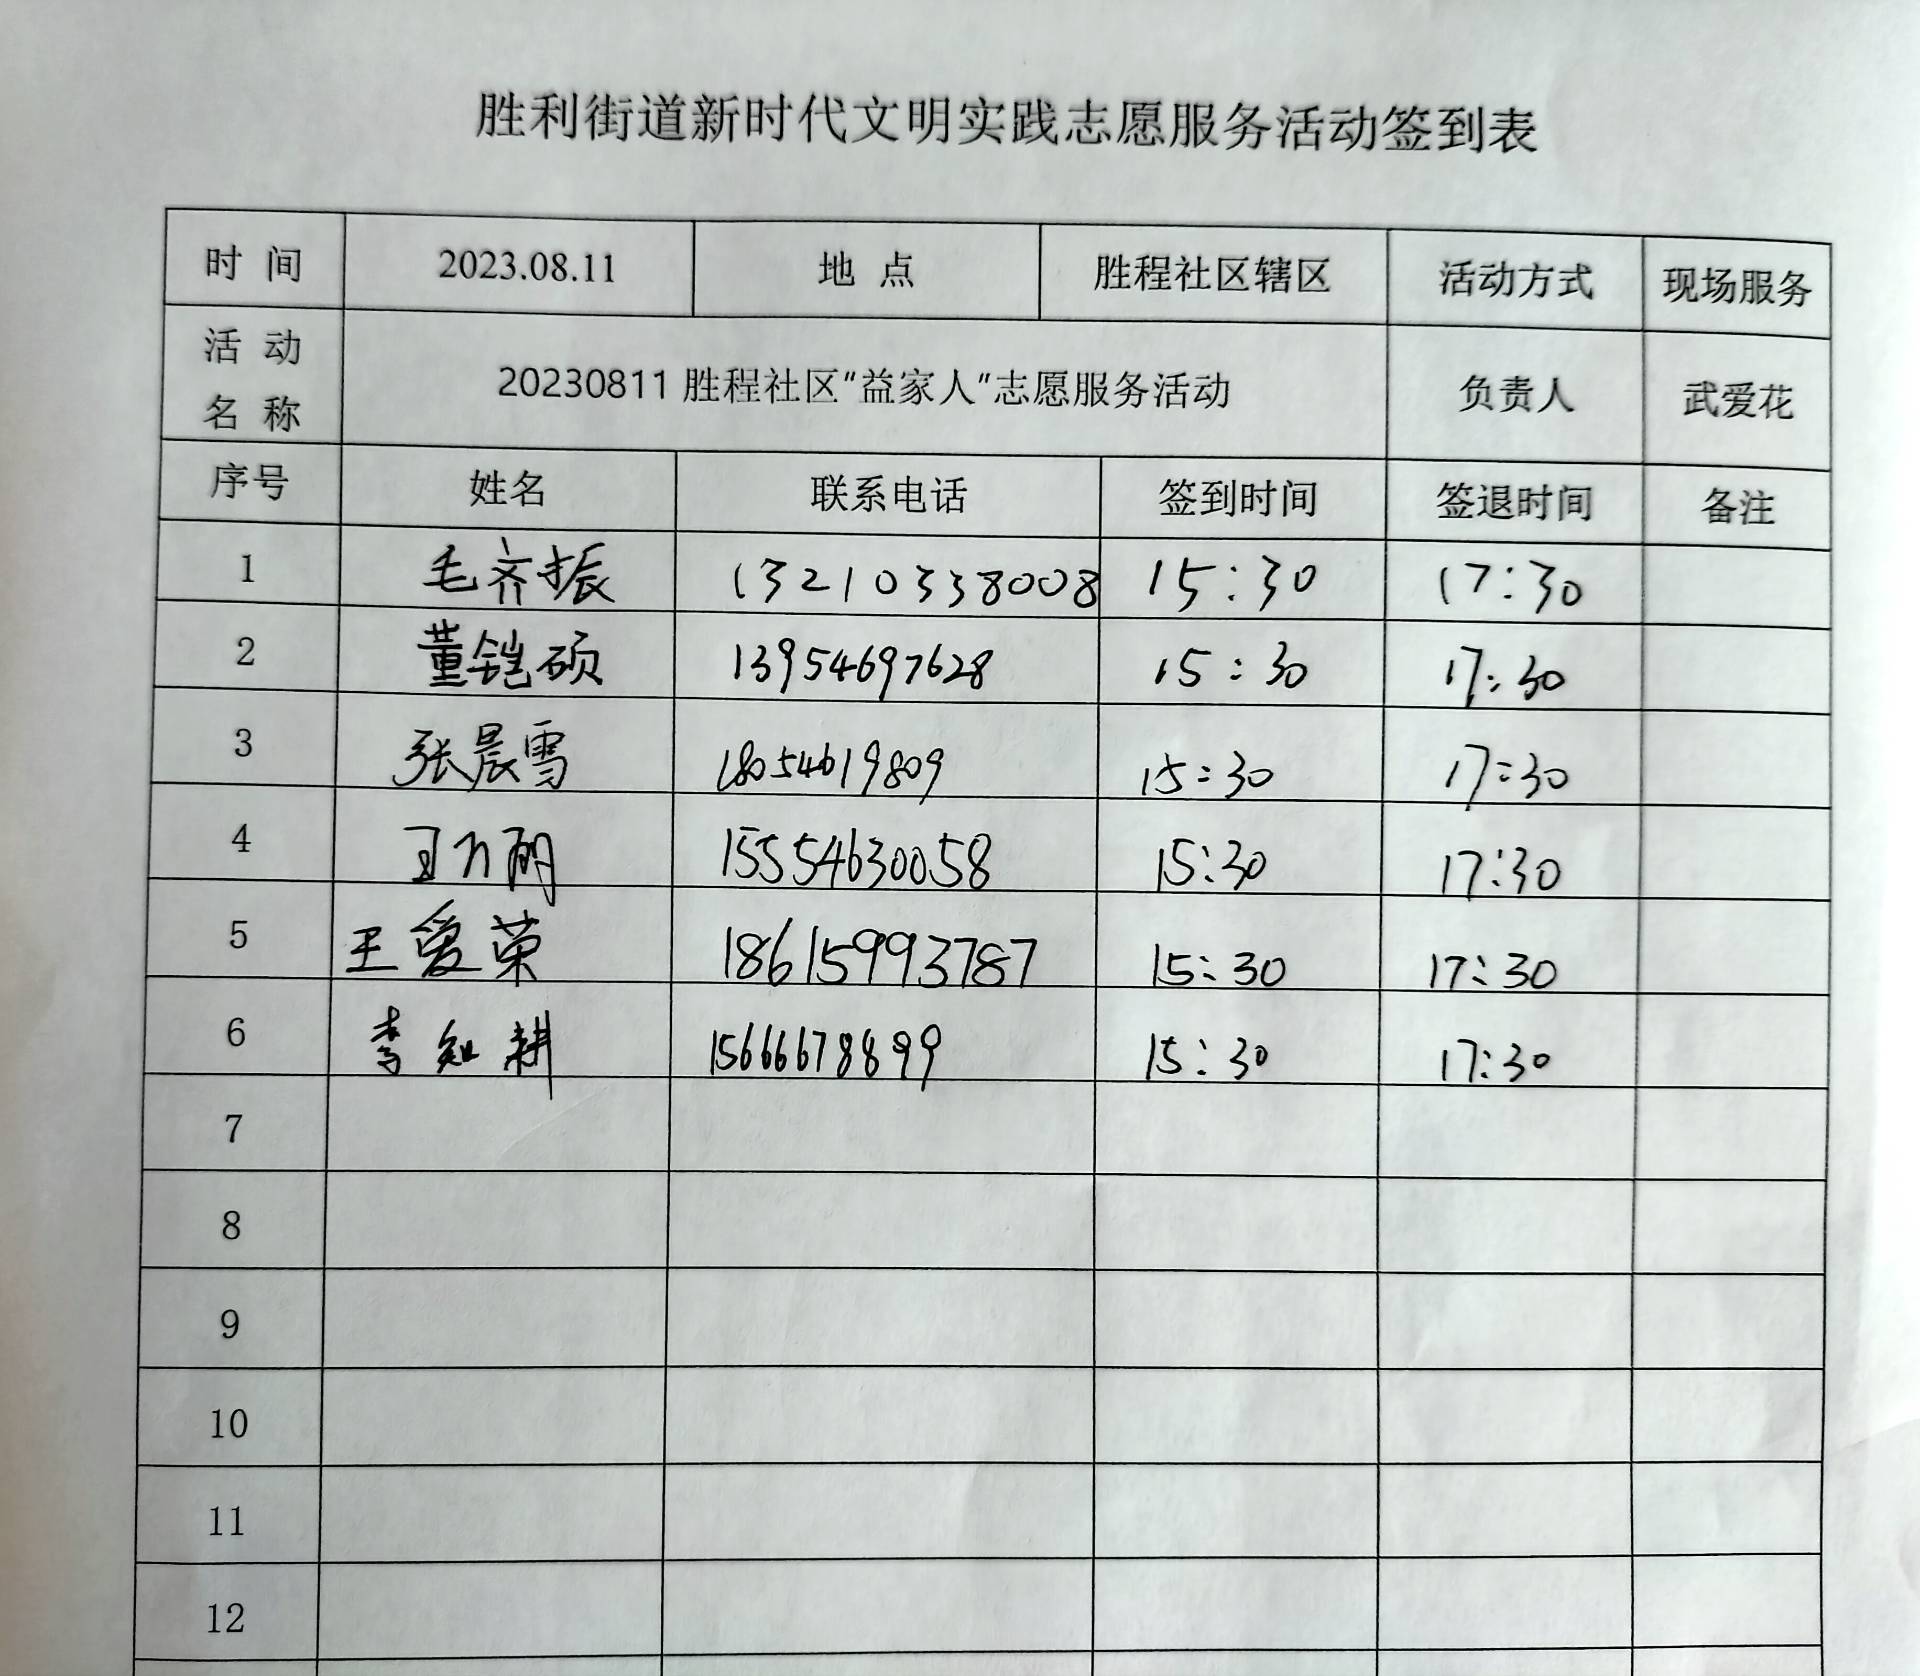 胜利街道新时代文明实践志愿服务活动签到表
时 间 2023.08.11 地 点 胜程社区辖区 活动方式 现场服务
活 动
名 称 20230811 胜程社区“益家人”志愿服务活动 负责人 武爱花
序号 姓名 联系电话 签到时间 签退时间 备注
1 毛齐振 13210338008 15:30 17:30
2 董铠硕 13954697628 15:30 17:30
3 张晨雪 18054619809 15:30 17:30
4 15554630058 15:30 17:30
5 王爱荣 18615993787 15:30 17:30
6 李知耕 15666678899 15:30 17:30
7
8
9
10
11
12